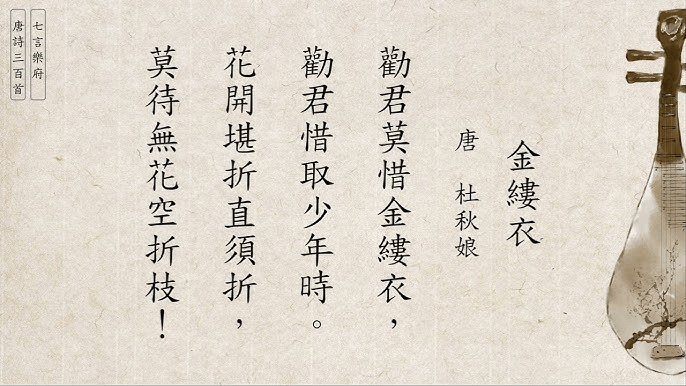 金縷衣
唐 杜秋娘
勸君莫惜金縷衣，
勸君惜取少年時。
花開堪折直須折，
莫待無花空折枝！
七言樂府
唐詩三百首